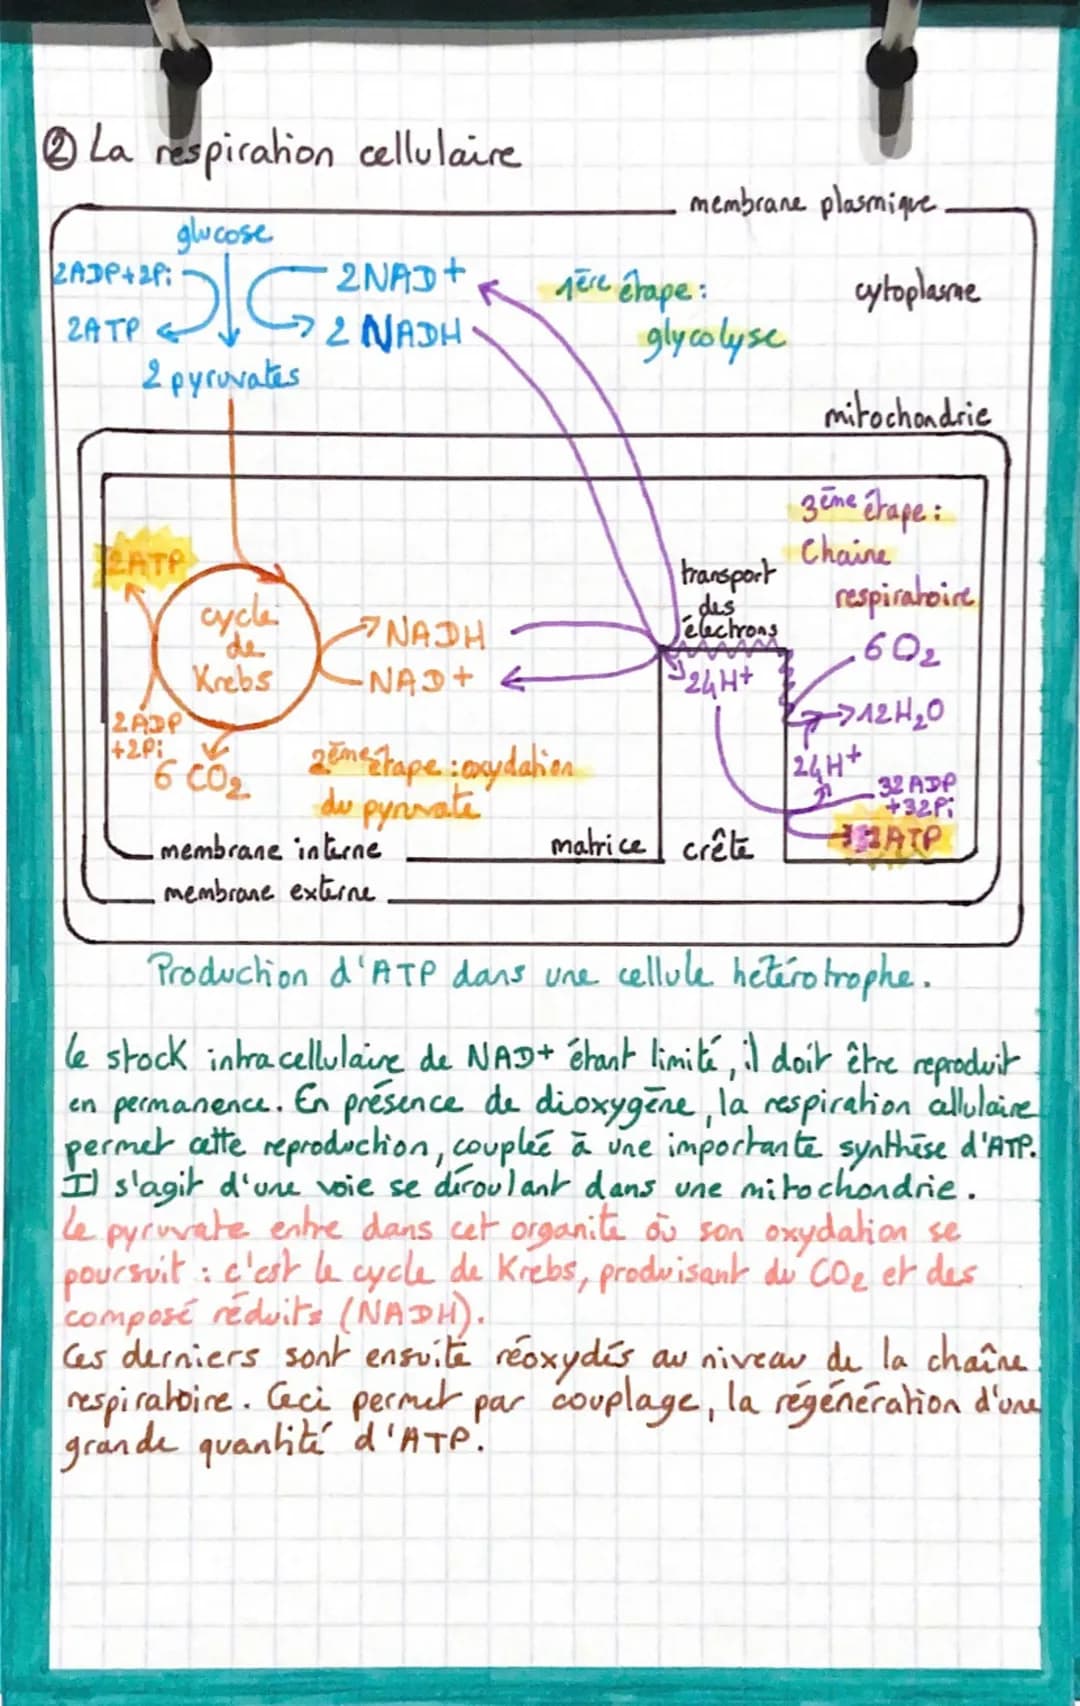 ② La respiration cellulaire
membrane plasmique
glucose
2ADP+2Pi
2NAD+
1ère étape :
cytoplasme
2ATP
2 NADH
glycolyse
2 pyruvates
mitochondrie
3ème étape :
Chaine
respiratoire
2ATP
transport
des
électrons
cycle
de
Krebs
NADH
NAD+
6O2
24H+
12H2O
2ADP
+2Pi
6 CO2
2ème étape : oxydation
du pyruvate
24H+
32 ADP
+32Pi
ATP
membrane interne
matrice
crête
membrane externe
Production d'ATP dans une cellule hétérotrophe.
Le stock intracellulaire de NAD+ étant limité, il doit être reproduit
en permanence. En présence de dioxygène, la respiration cellulaire
permet cette reproduction, couplée à une importante synthèse d'ATP.
Il s'agit d'une voie se déroulant dans une mitochondrie.
Le pyruvate entre dans cet organite où son oxydation se
poursuit : c'est le cycle de Krebs, produisant du CO2 et des
composé réduits (NADH).
Ces derniers sont ensuite réoxydés au niveau de la chaîne
respiratoire. Ceci permet par couplage, la régénération d'une
grande quantité d'ATP.